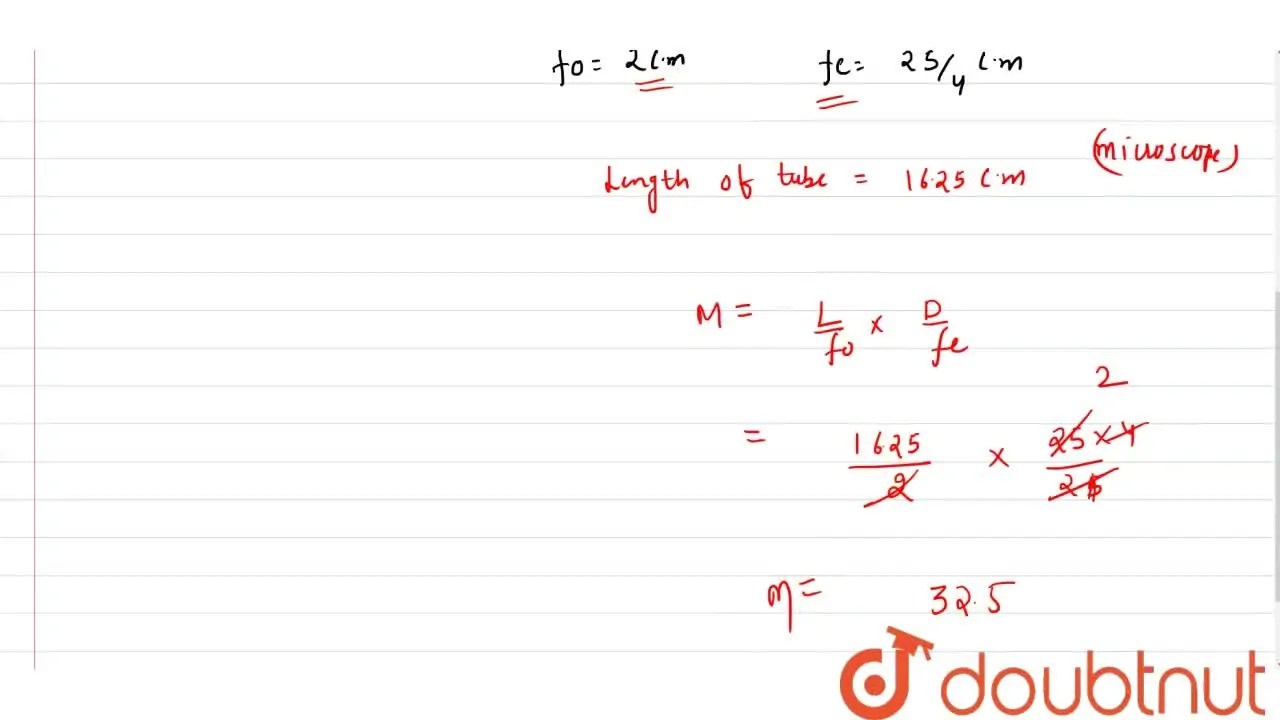 fo = 2 c.m fe = 25/4 c.m
(microscope)
Length of tube = 16.25 c.m
M = L/fo × D/fe
2
= 16.25/2 × 25×4/25
M = 32.5
doubtnut